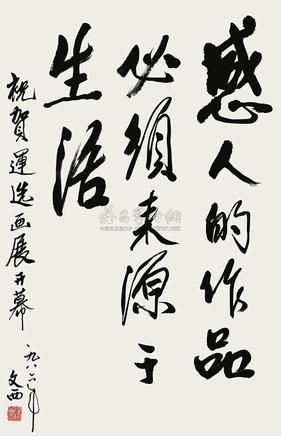 感人的作品
必须来源于
生活
祝贺運选画展开幕
一九八六年
文西